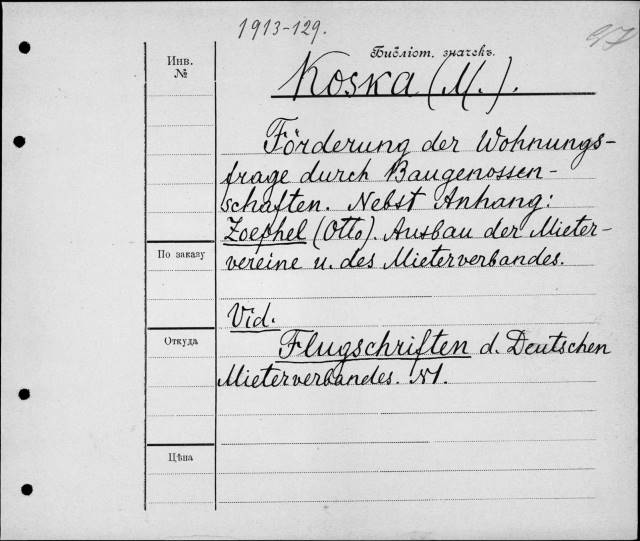 1913-129.
Инв.
№
Библіот. значекъ.
Koska (M.).
Förderung der Wohnungs-
frage durch Baugenossen-
schaften. Nebst Anhang:
Zoephel (Otto). Ausbau der Mieter-
vereine u. des Mieterverbandes.
По заказу
Vid.
Откуда
Flugschriften d. Deutschen
Mieterverbandes. №1.
Цѣна